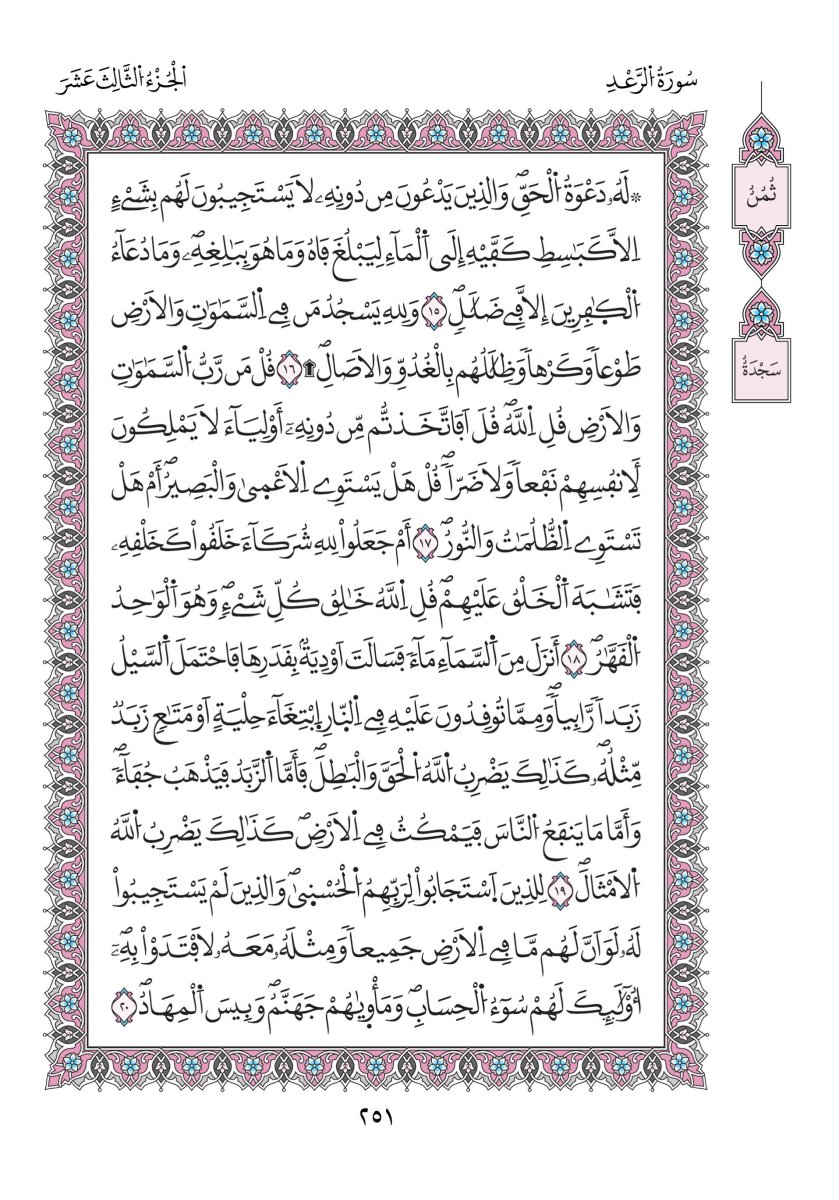 سُورَةُ الرَّعْدِ
الْجُزْءُ الثَّالِثَ عَشَرَ
ثُمُنُ
سَجْدَةٌ
۞لَهُۥ دَعْوَةُ اُ۬لْحَقِّۖ وَالذِينَ يَدْعُونَ مِن دُونِهِۦ لَا يَسْتَجِيبُونَ لَهُم بِشَےْءٍ
اِلَّا كَبَٰسِطِ كَفَّيْهِ إِلَي اَ۬لْمَآءِ لِيَبْلُغَ فَاهُ وَمَا هُوَ بِبَٰلِغِهِۦۖ وَمَا دُعَآءُ
اُ۬لْكٰ۪فِرِينَ إِلَّا فِے ضَلَٰلٖۖ ١٥ وَلِلهِ يَسْجُدُ مَن فِے اِ۬لسَّمَٰوَٰتِ وَالَارْضِ
طَوْعاٗ وَكَرْهاٗ وَظِلَٰلُهُم بِالْغُدُوِّ وَالَاصَالِۖ ۩ ١٦ قُلْ مَن رَّبُّ اُ۬لسَّمَٰوَٰتِ
وَالَارْضِ قُلِ اِ۬للَّهُۖ قُلَ اَفَاتَّخَذتُّم مِّن دُونِهِۦٓ أَوْلِيَآءَ لَا يَمْلِكُونَ
لِأَنفُسِهِمْ نَفْعاٗ وَلَا ضَرّاٗۖ قُلْ هَلْ يَسْتَوِے اِ۬لَاعْم۪ىٰ وَالْبَصِيرُۖ أَمْ هَلْ
تَسْتَوِے اِ۬لظُّلُمَٰتُ وَالنُّورُۖ ١٧ أَمْ جَعَلُواْ لِلهِ شُرَكَآءَ خَلَقُواْ كَخَلْقِهِۦ
فَتَشَٰبَهَ اَ۬لْخَلْقُ عَلَيْهِمْۖ قُلِ اِ۬للَّهُ خَٰلِقُ كُلِّ شَےْءٖۖ وَهُوَ اَ۬لْوَٰحِدُ
اُ۬لْقَهَّٰرُۖ ١٨ أَنزَلَ مِنَ اَ۬لسَّمَآءِ مَآءٗ فَسَالَتَ اَوْدِيَةُۢ بِقَدَرِهَا فَاحْتَمَلَ اَ۬لسَّيْلُ
زَبَداٗ رَّابِياٗۖ وَمِمَّا تُوقِدُونَ عَلَيْهِ فِے اِ۬لنّ۪ارِ اِ۪بْتِغَآءَ حِلْيَةٍ اَوْ مَتَٰعٖ زَبَدٞ
مِّثْلُهُۥۖ كَذَٰلِكَ يَضْرِبُ اُ۬للَّهُ اُ۬لْحَقَّ وَالْبَٰطِلَۖ فَأَمَّا اَ۬لزَّبَدُ فَيَذْهَبُ جُفَآءٗۖ
وَأَمَّا مَا يَنفَعُ اُ۬لنَّاسَ فَيَمْكُثُ فِے اِ۬لَارْضِۖ كَذَٰلِكَ يَضْرِبُ اُ۬للَّهُ
اُ۬لَامْثَالَۖ ١٩ لِلذِينَ اَ۪سْتَجَابُواْ لِرَبِّهِمُ اُ۬لْحُسْن۪ىٰۖ وَالذِينَ لَمْ يَسْتَجِيبُواْ
لَهُۥ لَوَ اَنَّ لَهُم مَّا فِے اِ۬لَارْضِ جَمِيعاٗ وَمِثْلَهُۥ مَعَهُۥ لَافْتَدَوْاْ بِهِۦٓۖ
أُوْلَٰٓئِكَ لَهُمْ سُوٓءُ اُ۬لْحِسَابِۖ وَمَأْو۪يٰهُمْ جَهَنَّمُۖ وَبِيسَ اَ۬لْمِهَادُۖ ٢٠
٢٥١